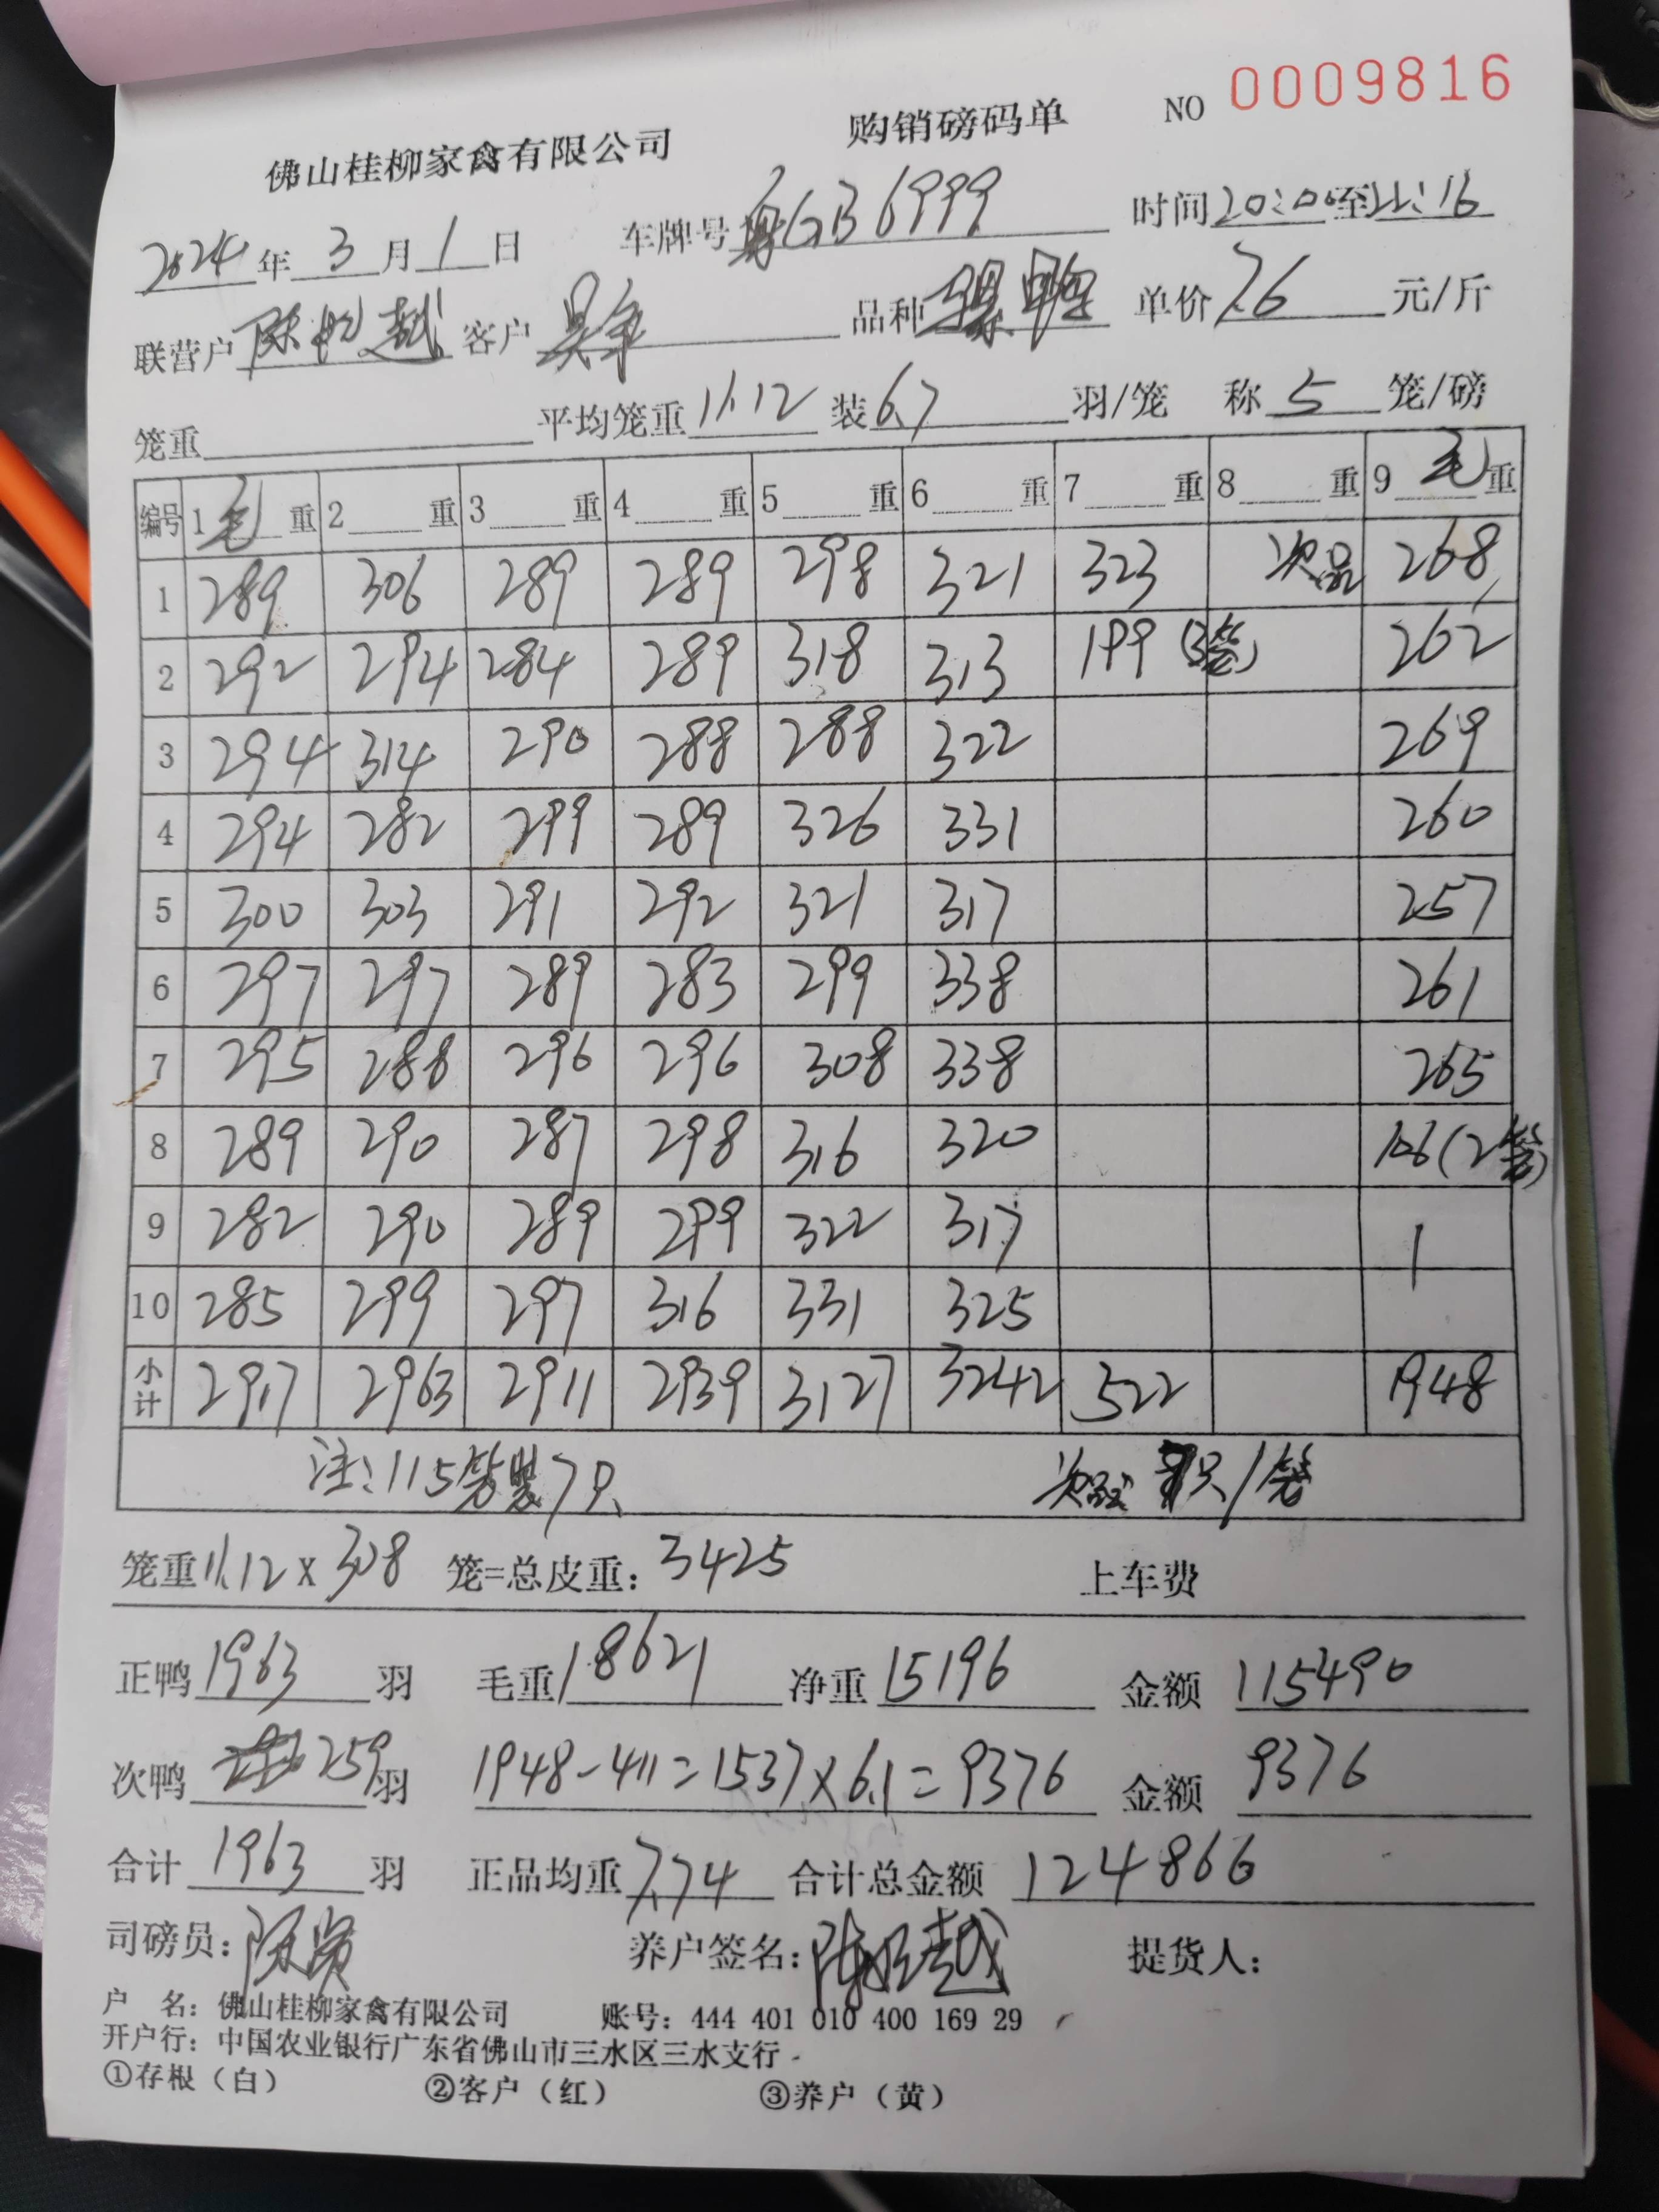 NO 0009816
佛山桂柳家禽有限公司 购销磅码单
2024年3月1日 车牌号粤GB6999 时间20:00至22:16
联营户陈 越 客户吴 品种骡鸭 单价7.6元/斤
笼重 平均笼重11.12 装6.7羽/笼 称5笼/磅
编号 1毛重 2重 3重 4重 5重 6重 7重 8重 9毛重
1 289 306 289 289 298 321 323 次品 268
2 292 294 284 289 318 313 199(3笼) 262
3 294 314 290 288 288 322 269
4 294 282 299 289 326 331 260
5 300 303 291 292 321 317 257
6 297 297 289 283 299 338 261
7 295 288 296 296 308 338 265
8 289 290 287 298 316 320 106(2笼)
9 282 290 289 299 322 317
10 285 299 297 316 331 325
小计 2917 2963 2911 2939 3127 3242 522 1948
注:115笼装7只 次品: 7只/笼
笼重11.12×308 笼=总皮重:3425 上车费
正鸭1963羽 毛重18621 净重15196 金额115490
次鸭259羽 1948-411=1537×6.1=9376 金额9376
合计1963羽 正品均重7.74 合计总金额124866
司磅员:陈 养户签名:陈 越 提货人:
户 名:佛山桂柳家禽有限公司 账号:444 401 010 400 169 29
开户行:中国农业银行广东省佛山市三水区三水支行
①存根(白) ②客户(红) ③养户(黄)